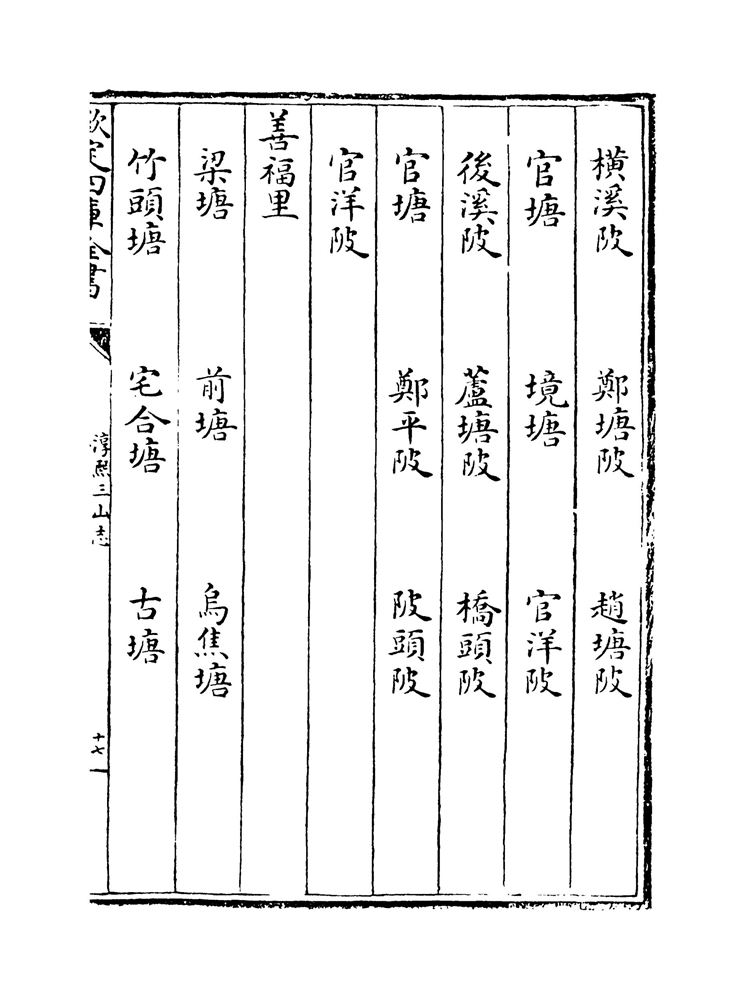 橫溪陂　鄭塘陂　趙塘陂
官塘　境塘　官洋陂
後溪陂　蘆塘陂　橋頭陂
官塘　鄭平陂　陂頭陂
官洋陂
善福里
梁塘　前塘　烏焦塘
竹頭塘　宅合塘　古塘
欽定四庫全書　淳熙三山志　十七